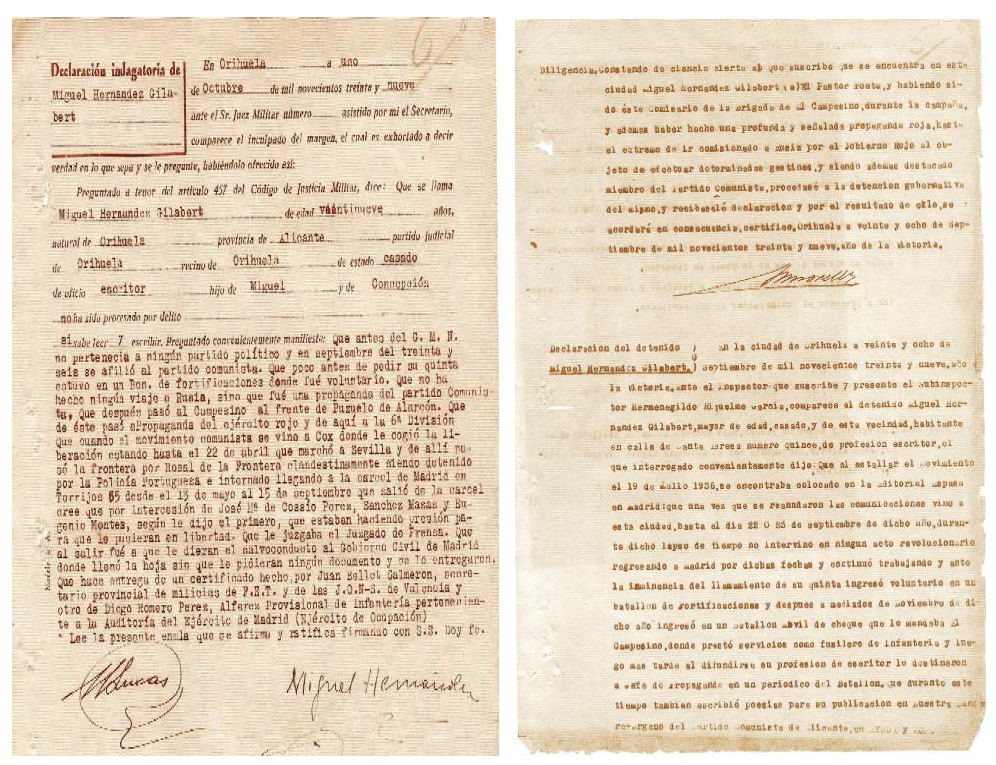 Declaración indagatoria de
Miguel Hernandez Gila-
bert
En Orihuela a uno
de Octubre de mil novecientos treinta y nueve
ante el Sr. Juez Militar número asistido por mi el Secretario,
comparece el inculpado del margen, el cual es exhortado a decir
verdad en lo que sepa y se le pregunte, habiéndolo ofrecido así:
Preguntado a tenor del artículo 457 del Código de Justicia Militar, dice: Que se llama
Miguel Hernandez Gilabert de edad váantinueve años,
natural de Orihuela provincia de Alicante partido judicial
de Orihuela vecino de Orihuela de estado casado
de oficio escritor hijo de Miguel y de Concepción
no ha sido procesado por delito
si sabe leer y escribir. Preguntado convenientemente manifiesta: Que antes del G. M. N.
no pertenecia a ningún partido político y en septiembre del treinta y
seis se afilió al partido comunista. Que poco antes de pedir su quinta
estuvo en un Bon. de fortificaciones donde fué voluntario. Que no ha
hecho ningún viaje a Rusia, sino que fué una propaganda del partido Comunis-
ta, Que después pasó al Campesino al frente de Pozuelo de Alarcón. Que
de éste pasó aPropaganda del ejército rojo y de aquí a la 6ª División
Que cuando el movimiento comunista se vino a Cox donde le cogió la li-
beración estando hasta el 22 de abril que marchó a Sevilla y de allí pa-
só la frontera por Rosal de la Frontera clandestinamente siendo detenido
por la Policía Portuguesa e internado llegando a la carcel de Madrid en
Torrijos 65 desde el 15 de mayo al 15 de septiembre que salió de la carcel
cree que por intercesión de José Mª de Cossio Perez, Sanchez Mazas y Eu-
genio Montes, según le dijo el primero, que estaban haciendo presión pa-
ra que le pusieran en libertad. Que le juzgaba el Juzgado de Prensa. Que
al salir fué a que le dieran el salvoconducto al Gobierno Civil de Madrid
donde llenó la hoja sin que le pidieran ningún documento y se lo entregaron.
Que hace entrega de un certificado hecho, por Juan Bellot Salmeron, secre-
tario provincial de milicias de F.E.T. y de las J.O-N-S. de Valencia y
otro de Diego Romero Perez, Alferez Provisional de Infantería pertenecien-
te a la Auditoría del Ejército de Madrid (Ejército de Ocupación)
Lee la presente que se afirma y ratifica firmando con S.S. Doy fe.
Miguel Hernandez
Diligencia. Constando de ciencia cierta al que suscribe que se encuentra en esta
ciudad Miguel Hernandez Gilabert (a)El Pastor Poeta, y habiendo si-
do éste Comisario de la Brigada de El Campesino, durante la campaña,
y ademas haber hecho una profunda y señalada propaganda roja, hasta
el extremo de ir comisionado a Rusia por el Gobierno Rojo al ob-
jeto de efectuar determinadas gestines, y siendo ademas destacado
miembro del Partido Comunista, procedasé a la detencion gubernativa
del mismo, y recibaselé declaracion y por el resultado de eklo, se
acordará en consecuencia, certifico, Orihuela a veinte y ocho de Sep-
tiembre de mil novecientos treinta y nueve, año de la Victoria.
Declaracion del detenido ) En la ciudad de Orihuela a veinte y ocho de
Miguel Hernandez Gilabert. ) Septiembre de mil novecientos treinta y nueve, año
la Victoria, ante el Inspector que suscribe y presente el Subinspec-
tor Hermenegildo Riquelme Garcia, comparece el detenido Miguel Her-
nandez Gilabert, mayor de edad, casado, y de esta vecindad, habitante
en calle de Santa Teresa numero quince, de profesion escritor, el
que interrogado convenientemente dijo: Que al estallar el movimiento
el 19 de Julio 1936, se encontraba colocado en la Editorial Espasa
en Madrid: que una vez que se reanudaron las comunicaciones vino a
esta ciudad, hasta el dia 22 O 23 de septiembre de dicho año, duran-
te dicho lapso de tiempo no intervino en ningun acto revolucionario
regresando a Madrid por dichas fechas y continuó trabajando y ante
la inminencia del llamamiento de su quinta ingresó voluntario en un
batallon de Fortificaciones y despues a mediados de Noviembre de di-
cho año ingresó en un Batallon Movil de cheque que lo mandaba El
Campesino, donde prestó servicios como fusilero de Infanteria y lue-
go mas tarde al difundirse su profesion de escritor lo destinaron
a Jefe de Propaganda en un periodico del Batallon, que durante este
tiempo tambien escribió poesias para su publicacion en Nuestra
organo del Partido Comunista de Alicante, en